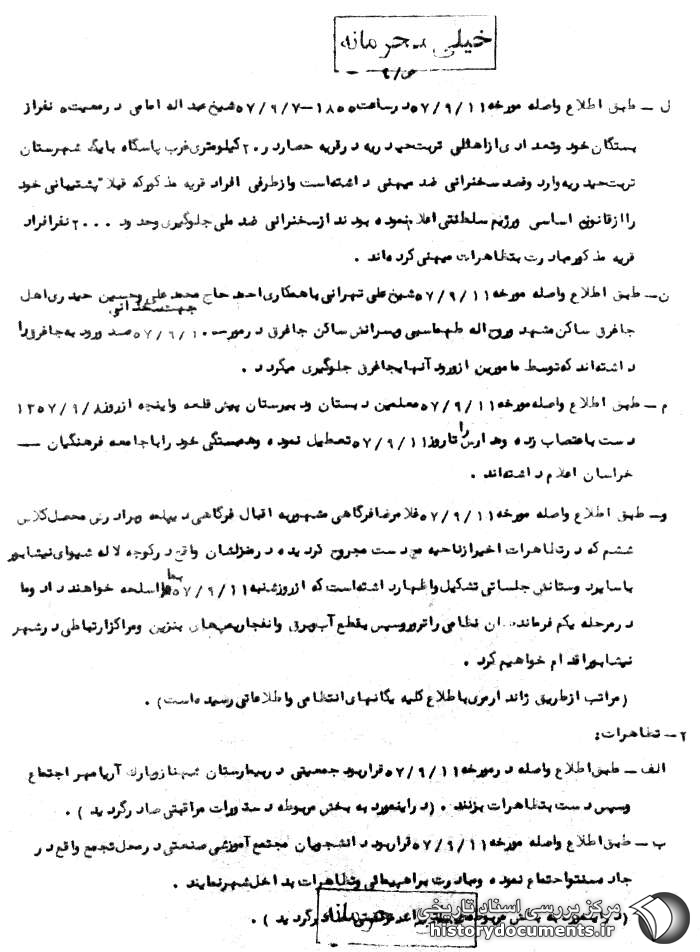 خیلی محرمانه
ل – طبق اطلاع واصله مورخه ۵۷/۹/۱۱ در ساعت ۱۸۰۰–۵۷/۹/۷ شیخ عبداله امامی در معیت ۵ نفر از
بستگان خود و تعدادی از اهالی تربت حیدریه در قریه حصار در ۲۰ کیلومتری غرب پاسگاه بایگ شهرستان
تربت حیدریه وارد و قصد سخنرانی ضد میهنی داشته است و از طرفی افراد قریه مذکور که قبلا" پشتیبانی خود
را از قانون اساسی و رژیم سلطنتی اعلام نموده بودند از سخنرانی ضد ملی جلوگیری و حدود ۲۰۰۰ نفر افراد
قریه مذکور مبادرت بتظاهرات میهنی کرده‌اند .
ن – طبق اطلاع واصله مورخه ۵۷/۹/۱۱ شیخ علی تهرانی با همکاری احمد حاج محمد علی و حسین حیدری اهل
جاغرق ساکن مشهد و روح اله طهماسبی و پسرانش ساکن جاغرق در مورخه ۵۷/۹/۱۰ جهت سخنرانی قصد ورود به جاغرق را
داشته‌اند که توسط مامورین از ورود آنها بجاغرق جلوگیری میگردد .
م – طبق اطلاع واصله مورخه ۵۷/۹/۱۱ معلمین دبستان و دبیرستان پیش قلعه و اینچه از روز ۱۳۵۷/۹/۸
دست باعتصاب زده و مدارس را تا روز ۵۷/۹/۱۱ تعطیل نموده و همبستگی خود را با جامعه فرهنگیان —
خراسان اعلام داشته‌اند .
و – طبق اطلاع واصله مورخه ۵۷/۹/۱۱ غلامرضا فرگاهی مشهور به اقبال فرگاهی دیپلمه و برادرش محصل کلاس
ششم که در تظاهرات اخیر از ناحیه مچ دست مجروح گردیده در منزلشان واقع در کوچه لاله شیوای نیشابور
با سایر دوستانش جلساتی تشکیل و اظهار داشته است که از روز شنبه ۵۷/۹/۱۱ بما اسلحه خواهند داد و ما
در مرحله یکم فرماندهان نظامی را ترور و سپس بقطع آب و برق و انفجار پمپ‌های بنزین و مراکز ارتباطی در شهر
نیشابور اقدام خواهیم کرد .
(مراتب از طریق ژاندارمری باطلاع کلیه یگانهای انتظامی و اطلاعاتی رسیده است) .
۲ – تظاهرات:
الف – طبق اطلاع واصله در مورخه ۵۷/۹/۱۱ قرار بود جمعیتی در بیمارستان شهناز و پارک آریامهر اجتماع
و سپس دست بتظاهرات بزنند . (در اینمورد به بخش مربوطه دستورات مراقبتی صادر گردید ) .
ب – طبق اطلاع واصله مورخه ۵۷/۹/۱۱ قرار بود دانشجویان مجتمع آموزشی صنعتی در محل تجمع واقع در
جاده سنتو اجتماع نموده و مبادرت براهپیمائی و تظاهرات بداخل شهر نمایند .
(در اینمورد به بخش مربوطه گردید ) .
محرمانه
مرکز بررسی اسناد تاریخی
historydocuments.ir